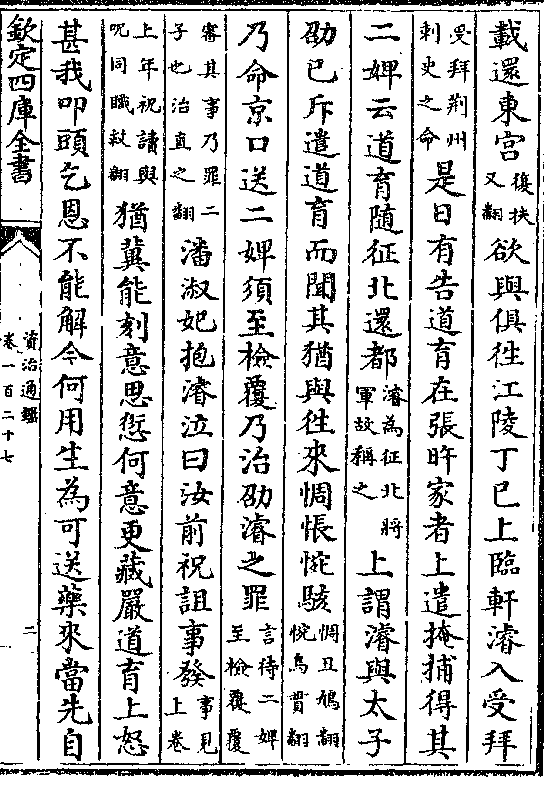 載還東宮復扶又翻欲與俱往江陵丁巳上臨軒濬入受拜
受拜荆州刺史之命是日有告道育在張旿家者上遣掩捕得其
二婢云道育隨征北還都濬為征北將軍故稱之上謂濬與太子
劭已斥遣道育而聞其猶與往來惆悵惋駭惆丑鳩翻惋烏貫翻
乃命京口送二婢須至檢覆乃治劭濬之罪言待二婢至檢覆覆
審其事乃罪二子也治直之翻潘淑妃抱濬泣曰汝前祝詛事發事見上卷
上年祝讀與呪同職救翻猶冀能刻意思愆何意更藏嚴道育上怒
甚我叩頭乞恩不能解今何用生為可送藥來當先自
欽定四庫全書
資治通鑑
卷一百二十七
二